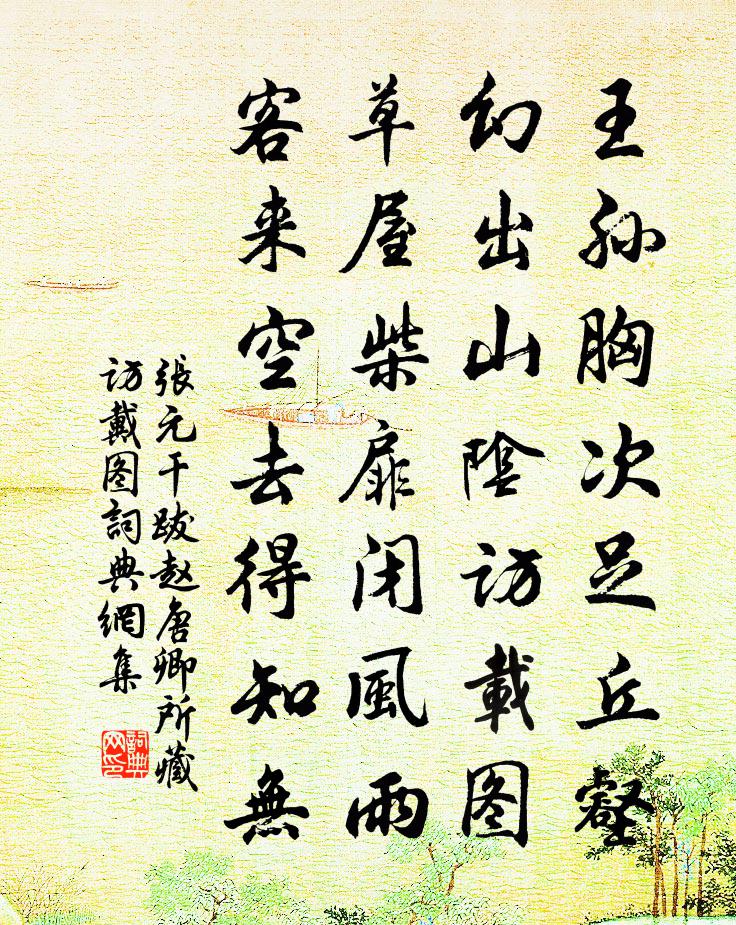 王孙胸次足丘壑
幻出山陰访載图
草屋柴扉闭風雨
客来空去得知無
張元干跋赵唐卿所藏
访戴图詞典網集
詞典
网印